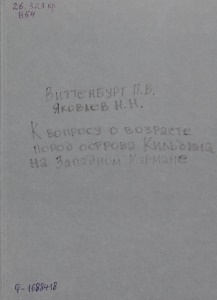 26.323 кр
В54
Виттенбург П.В.
Яковлев Н.Н.
К вопросу о возрасте
пород острова Кильдина
на Западном Мурмане
Ф-1688418